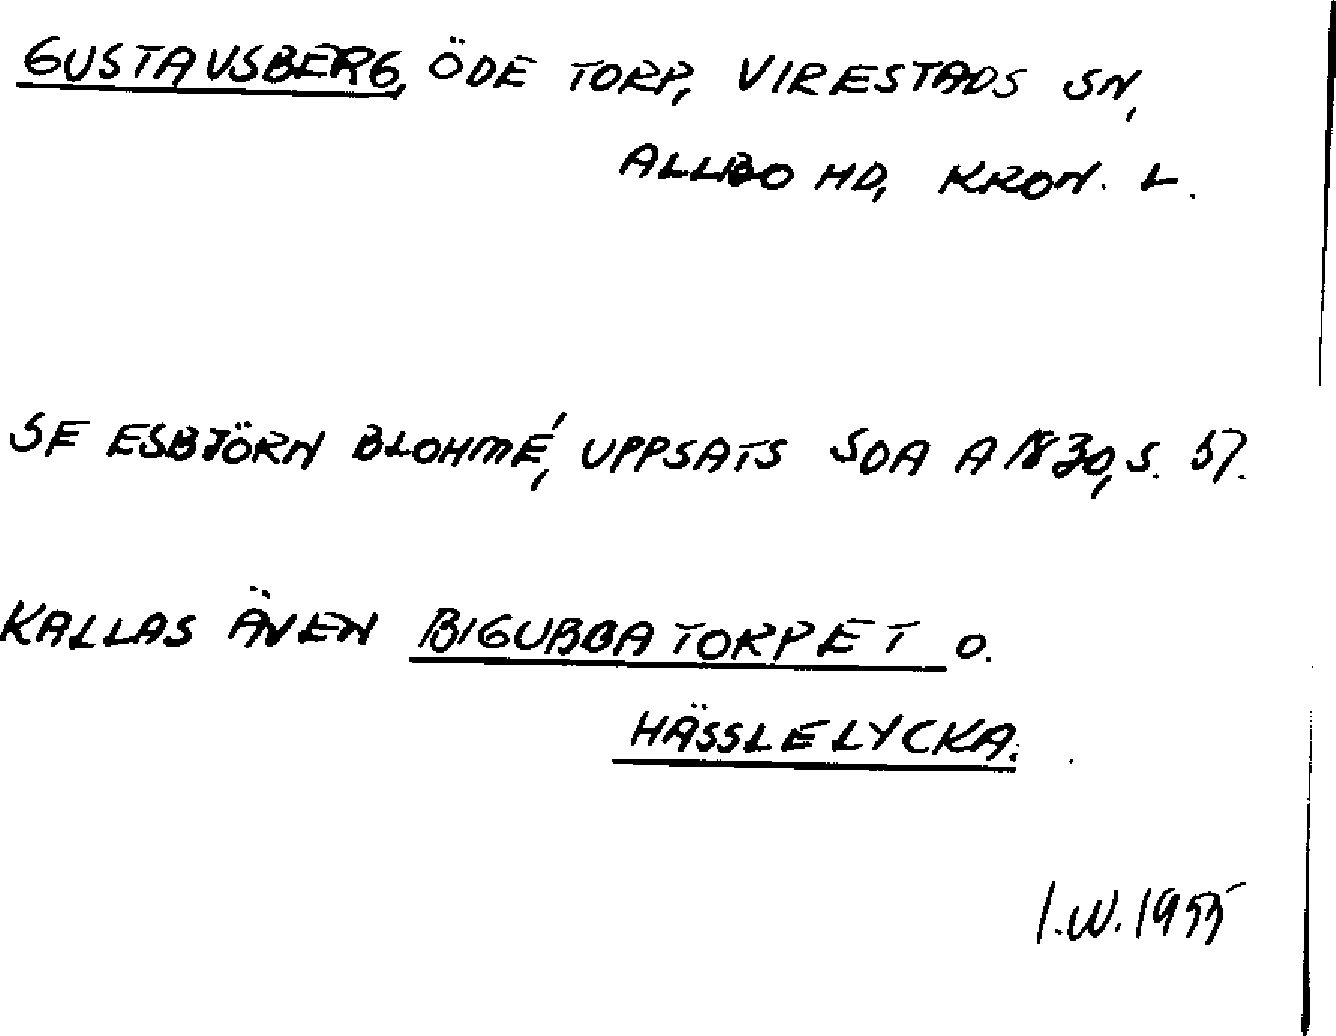 GUSTAVSBERG, ÖDE TORP, VIRESTADS SN,
ALLBO HD, KRON. L.
SE ESBJÖRN BLOHMÉ, UPPSATS SOA A 1830, S. 57.
KALLAS ÄVEN BIGUBBATORPET O.
HÄSSLELYCKA.
I.W. 1955